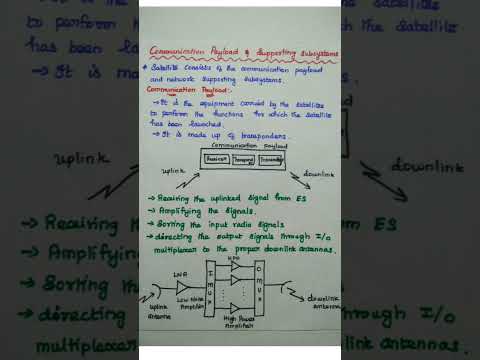 Communication Payload & Supporting Subsystems
* Satellite consists of the communication payload
and network supporting subsystems.
Communication Payload:-
→ It is the equipment carried by the satellite
to perform the functions for which the satellite
has been launched.
→ It is made up of transponders.
Communication payload
uplink
downlink
→ Receiving the uplinked signal from ES
→ Amplifying the signals.
→ Sorting the input radio signals
→ directing the output signals through I/O
multiplexers to the proper downlink antennas.
HPA
LNA
I
MUX
O
MUX
Low Noise
Amplifier
uplink
antenna
High Power
Amplifiers
downlink
antenna
to perform
has been la
→ It is ma
the satellite
→ Receiving
→ Amplifyin
→ Sorting the
→ directing
multiplexe
ES
through I/O
antennas.